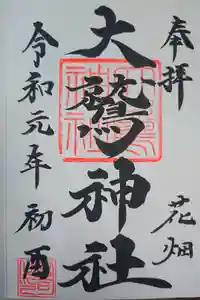 奉拝
花畑
大鷲神社
令和元年初酉